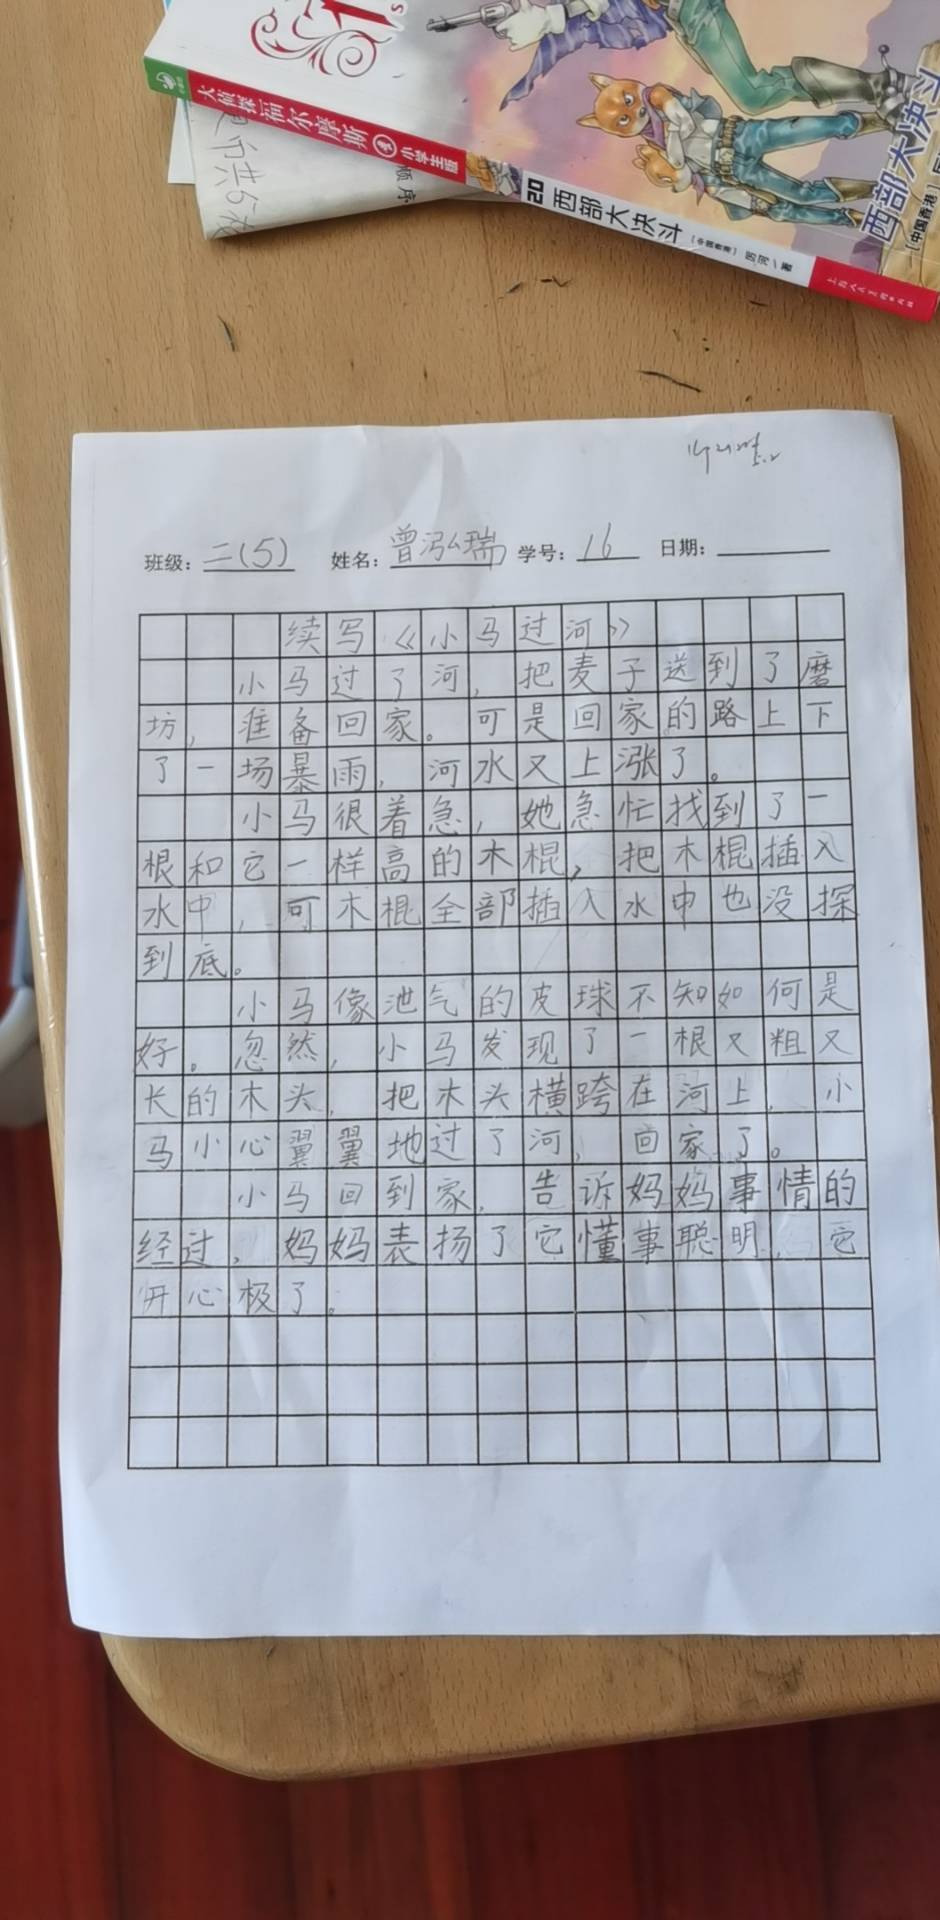 大侦探福尔摩斯 小学生版
20 西部大决斗 (中国香港) 厉河/著
上海人民美术出版社
西部大决斗
[中国香港]
顺序
班级:二(5) 姓名:曾泓瑞 学号:16 日期:
续写《小马过河》
小马过了河,把麦子送到了磨
坊,准备回家。可是回家的路上下
了一场暴雨,河水又上涨了。
小马很着急,她急忙找到了一
根和它一样高的木棍,把木棍插入
水中,可木棍全部插入水中也没探
到底。
小马像泄气的皮球不知如何是
好。忽然,小马发现了一根又粗又
长的木头,把木头横跨在河上,小
马小心翼翼地过了河,回家了。
小马回到家,告诉妈妈事情的
经过,妈妈表扬了它懂事聪明,它
开心极了。